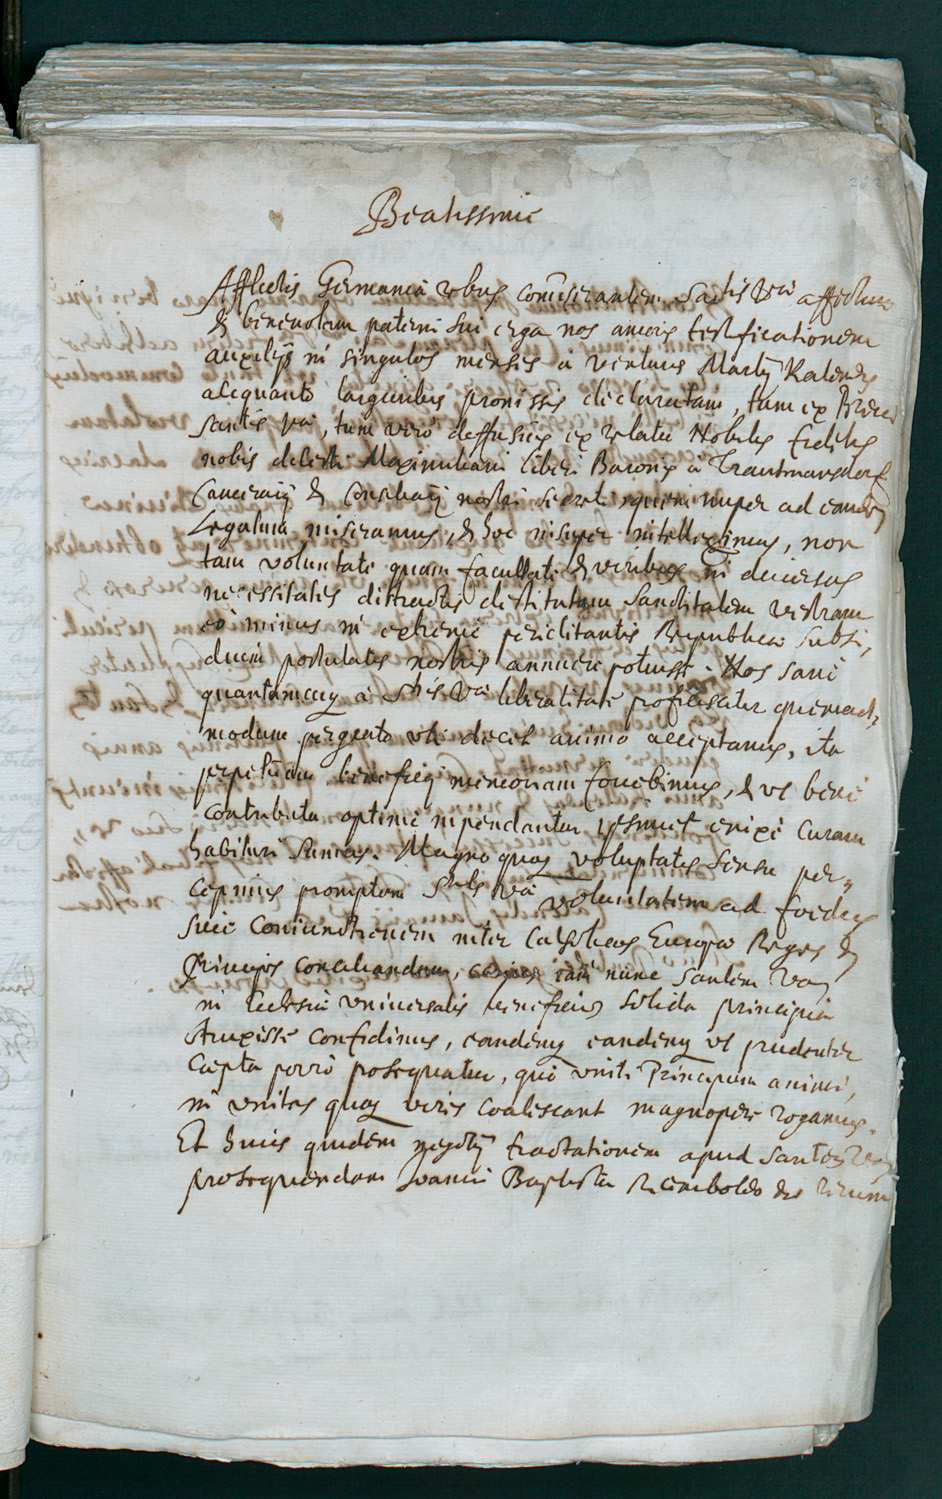 Beatissime
Afflictis Germaniæ rebus com̃iserantem Sactis Vræ affectum
& benevolam paterni sui erga nos amoris testificationem
auxilijs in singulos menses à venturis Martij Kalendis
aliquanto largioribus promissis declaratam, tum ex Brevi
Sanctis Vræ, tum verò deffusius ex relatu Nobilis fidelis
nobis dilecti Maximiliani liberi Baronis à Trautmansdorf
Camerarij & Consiliarij nostri Secreti, quem nuper ad eandem
Legatum miseramus, & hoc insuper intelleximus, non
tam voluntate quam facultate & viribus in diversas
necessitates distractis destitutam Sanctitatem vestram
eò minus in extremè periclitantis Reipublicæ subsi,
dium postulatis nostris annuere potuisse. Nos sanè
quantumcunq à Stis Væ liberalitate proficiscatur quemad,
modum pergrato uti decet animo acceptamus, ita
perpetuam beneficij memoriam fovebimus, & ut benè
contributa optimè impendantur enixè curam
habituri sumus. Magno quoq voluptatis sensu per,
cepimus promptam Stis Væ voluntatem ad foedus
sive coniunctionem inter Catholicos Europæ Reges &
Principes conciliandam, cuius iam nunc Sanctem Vam
in Ecclesiæ universalis beneficium solida principia
struxisse confidimus, eandemq ut prudenter
cæpta porrò prosequatur, quò uniti Principum animi,
in unitas quoq vires coalescant magnopere rogamus.
Et huius quidem negotij tractationem apud Sanctem Vam
prosequendam Joanni Baptistæ